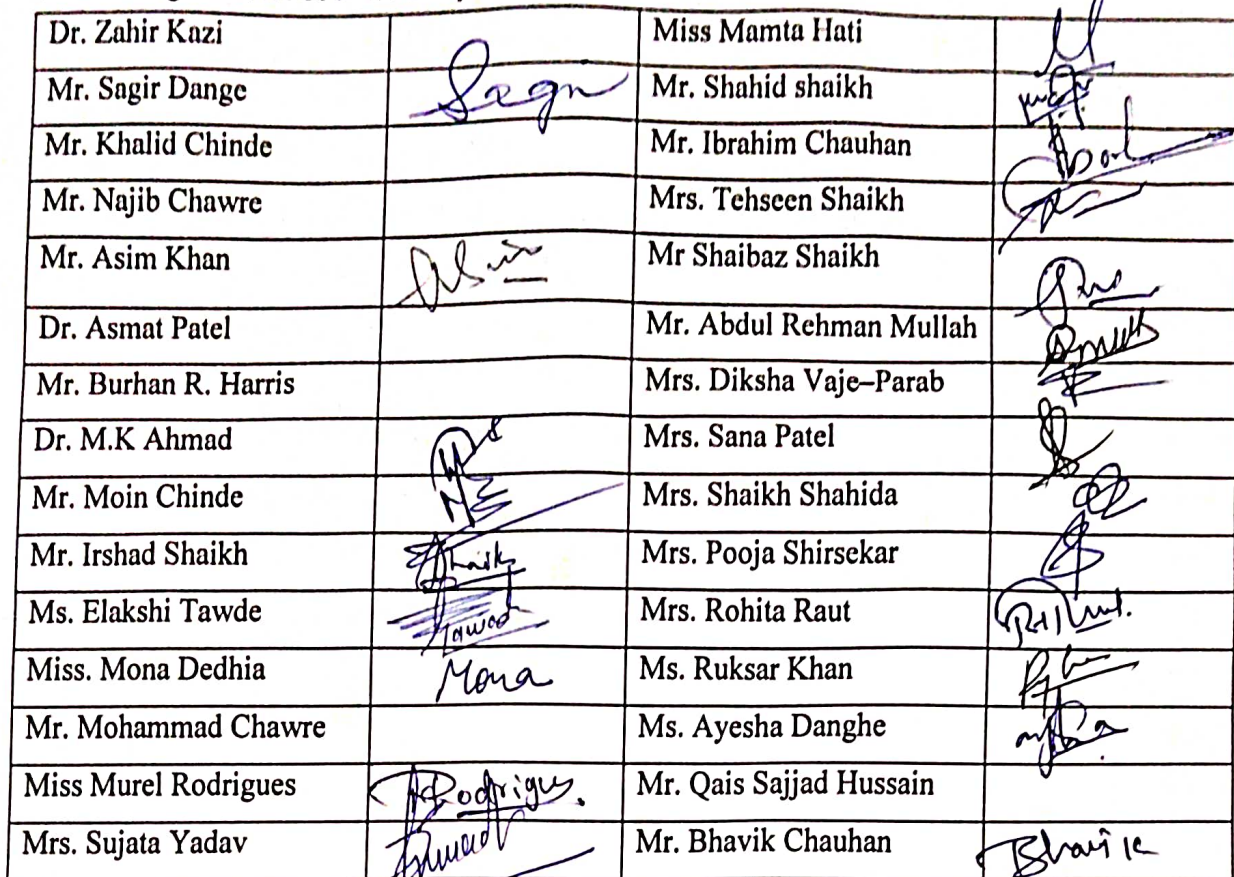 Dr. Zahir Kazi Miss Mamta Hati
Mr. Sagir Dange Sagir Mr. Shahid shaikh
Mr. Khalid Chinde Mr. Ibrahim Chauhan
Mr. Najib Chawre Mrs. Tehseen Shaikh
Mr. Asim Khan Mr Shaibaz Shaikh
Dr. Asmat Patel Mr. Abdul Rehman Mullah
Mr. Burhan R. Harris Mrs. Diksha Vaje–Parab
Dr. M.K Ahmad Mrs. Sana Patel
Mr. Moin Chinde Mrs. Shaikh Shahida
Mr. Irshad Shaikh Shaikh Mrs. Pooja Shirsekar
Ms. Elakshi Tawde Mrs. Rohita Raut
Miss. Mona Dedhia Mona Ms. Ruksar Khan
Mr. Mohammad Chawre Ms. Ayesha Danghe
Miss Murel Rodrigues Rodrigues. Mr. Qais Sajjad Hussain
Mrs. Sujata Yadav Mr. Bhavik Chauhan Bhavik